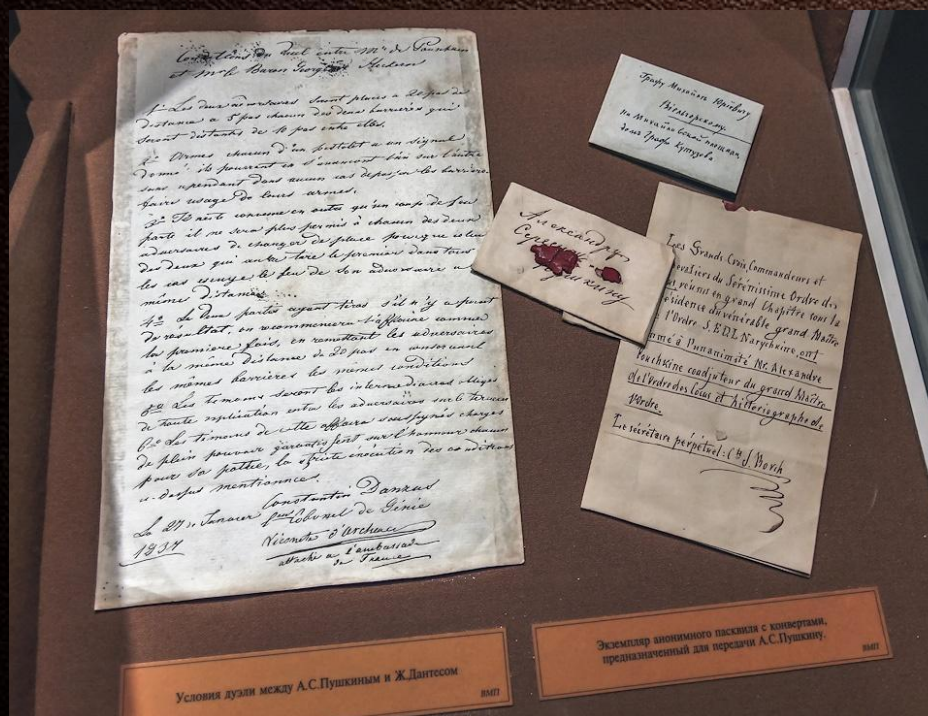 Conditions du Duel entre Mr de Pouchkine
et Mr le Baron Georges Heckeren
1º Les deux adversaires seront placés à 20 pas de
distance à 5 pas chacun des deux barrières qui
seront distants de 10 pas entre elles.
2º Armés chacun d'un pistolet à un signal
donné ils pourront en s'avançant l'un sur l'autre
sans cependant dans aucun cas dépasser les barrières
faire usage de leurs armes.
3º Il reste convenu en outre qu'un coup de feu
parti il ne sera plus permis à chacun des deux
adversaires de changer de place pour que celui
des deux qui aura tiré le premier dans tous
les cas essuye le feu de son adversaire à
même distance.
4º Les deux parties ayant tirés s'il n'y a point
de résultat, on recommencera l'affaire comme
la première fois, en remettant les adversaires
à la même distance de 20 pas en conservant
les mêmes barrières les mêmes conditions
Les témoins seront les intermédiaires obligés
de toute explication entre les adversaires sur le terrain
6º Les témoins de cette affaire soussignés chargés
de plein pouvoir garantissent sur l'honneur chacun
pour sa partie, la stricte exécution des conditions
ci-dessus mentionnée.
Constantin Danzas
Le 27 de Janvier Colonel de Génie
1837 Vicomte d'Archiac
attaché à l'ambassade
de France
Графу Михайлѣ Юрiевичу
Вiельгорскому.
на Михайловской площади
домъ Графа Кутузова
Александру
Сергеевичу
Пушкину
Les Grands-Croix, Commandeurs et
Chevaliers du Sérénissime Ordre des
réunis en grand Chapitre sous la
présidence du vénérable grand Maître
l'Ordre, S.E.D.L. Narychkine, ont
nommé à l'unanimité Mr. Alexandre
Pouchkine coadjuteur du grand Maître
de l'Ordre des Cocus et historiographe de
l'ordre.
Le sécrétaire perpétuel: Cte J. Borch
Условия дуэли между А.С.Пушкиным и Ж.Дантесом
ВМП
Экземпляр анонимного пасквиля с конвертами,
предназначенный для передачи А.С.Пушкину.
ВМП